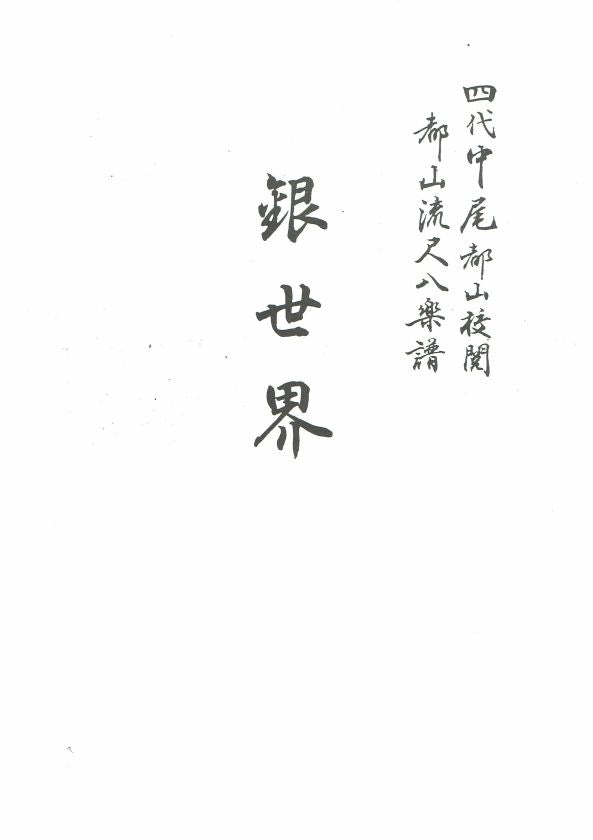 四代中尾都山校閲
都山流尺八楽譜
銀世界